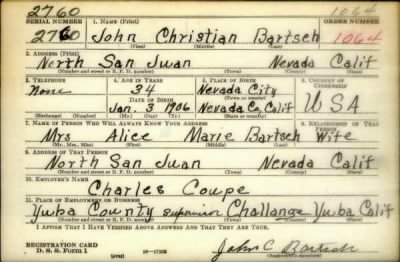 2760 1064
SERIAL NUMBER 1. NAME (Print) ORDER NUMBER
2760 John Christian Bartsch 1064
(First) (Middle) (Last)
2. ADDRESS (Print)
North San Juan Nevada Calif
(Number and street or R. F. D. number) (Town) (County) (State)
3. TELEPHONE 4. AGE IN YEARS 5. PLACE OF BIRTH 6. COUNTRY OF CITIZENSHIP
None 34 Nevada City
DATE OF BIRTH (Town or county)
Jan. 3 1906 Nevada Co, Calif USA
(Exchange) (Number) (Mo.) (Day) (Yr.) (State or country)
7. NAME OF PERSON WHO WILL ALWAYS KNOW YOUR ADDRESS 8. RELATIONSHIP OF THAT PERSON
Mrs Alice Marie Bartsch Wife
(Mr., Mrs., Miss) (First) (Middle) (Last)
9. ADDRESS OF THAT PERSON
North San Juan Nevada Calif
(Number and street or R. F. D. number) (Town) (County) (State)
10. EMPLOYER'S NAME
Charles Coupe
11. PLACE OF EMPLOYMENT OR BUSINESS
Yuba County Supervisor Challange Yuba Calif
(Number and street or R. F. D. number) (Town) (County) (State)
I AFFIRM THAT I HAVE VERIFIED ABOVE ANSWERS AND THAT THEY ARE TRUE.
REGISTRATION CARD
D. S. S. Form 1 (over) John C Bartsch